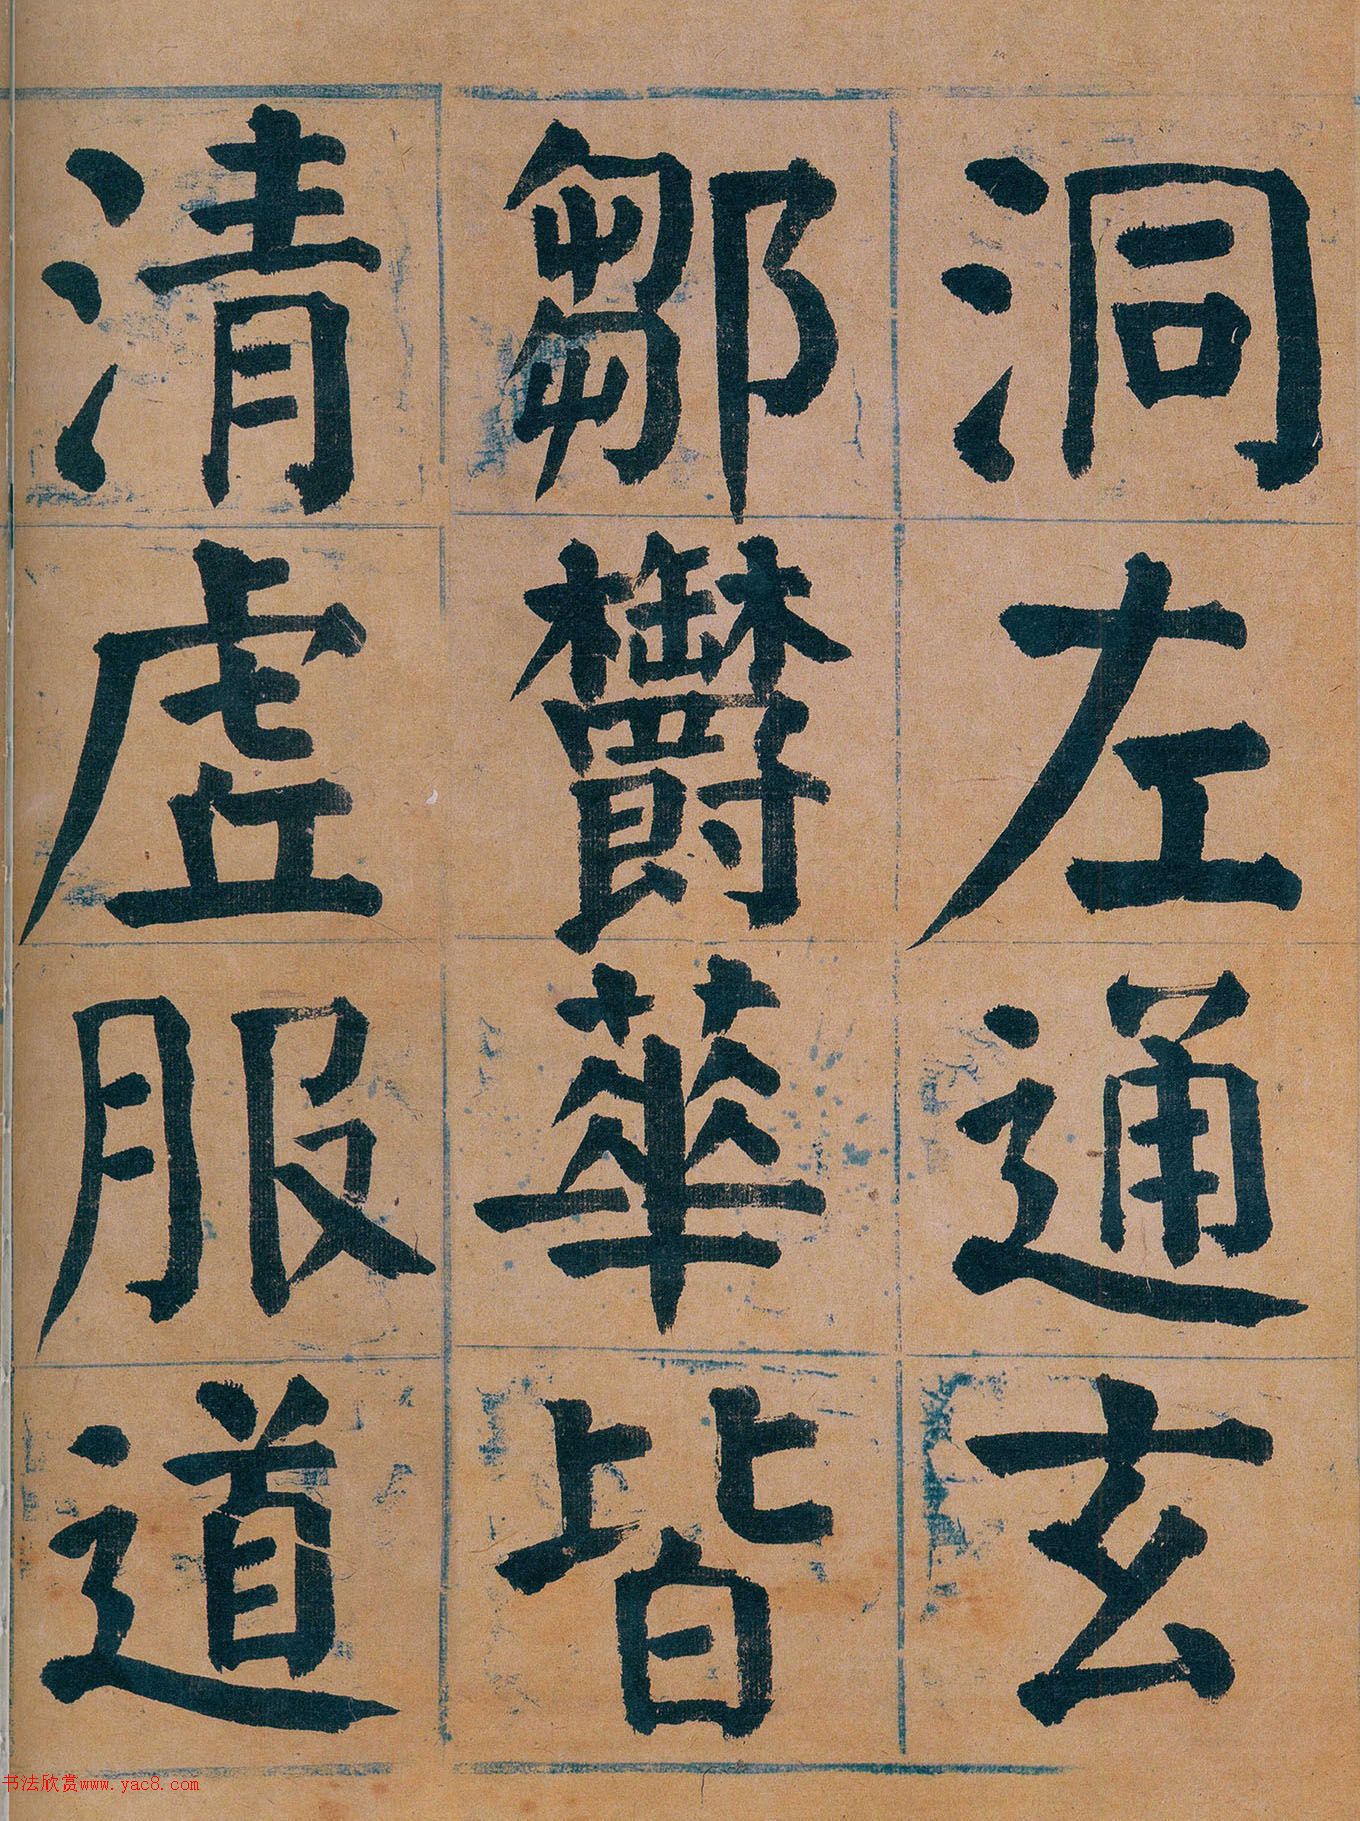 洞左通玄
鄒欝華皆
清虛服道
书法欣赏www.yac8.com